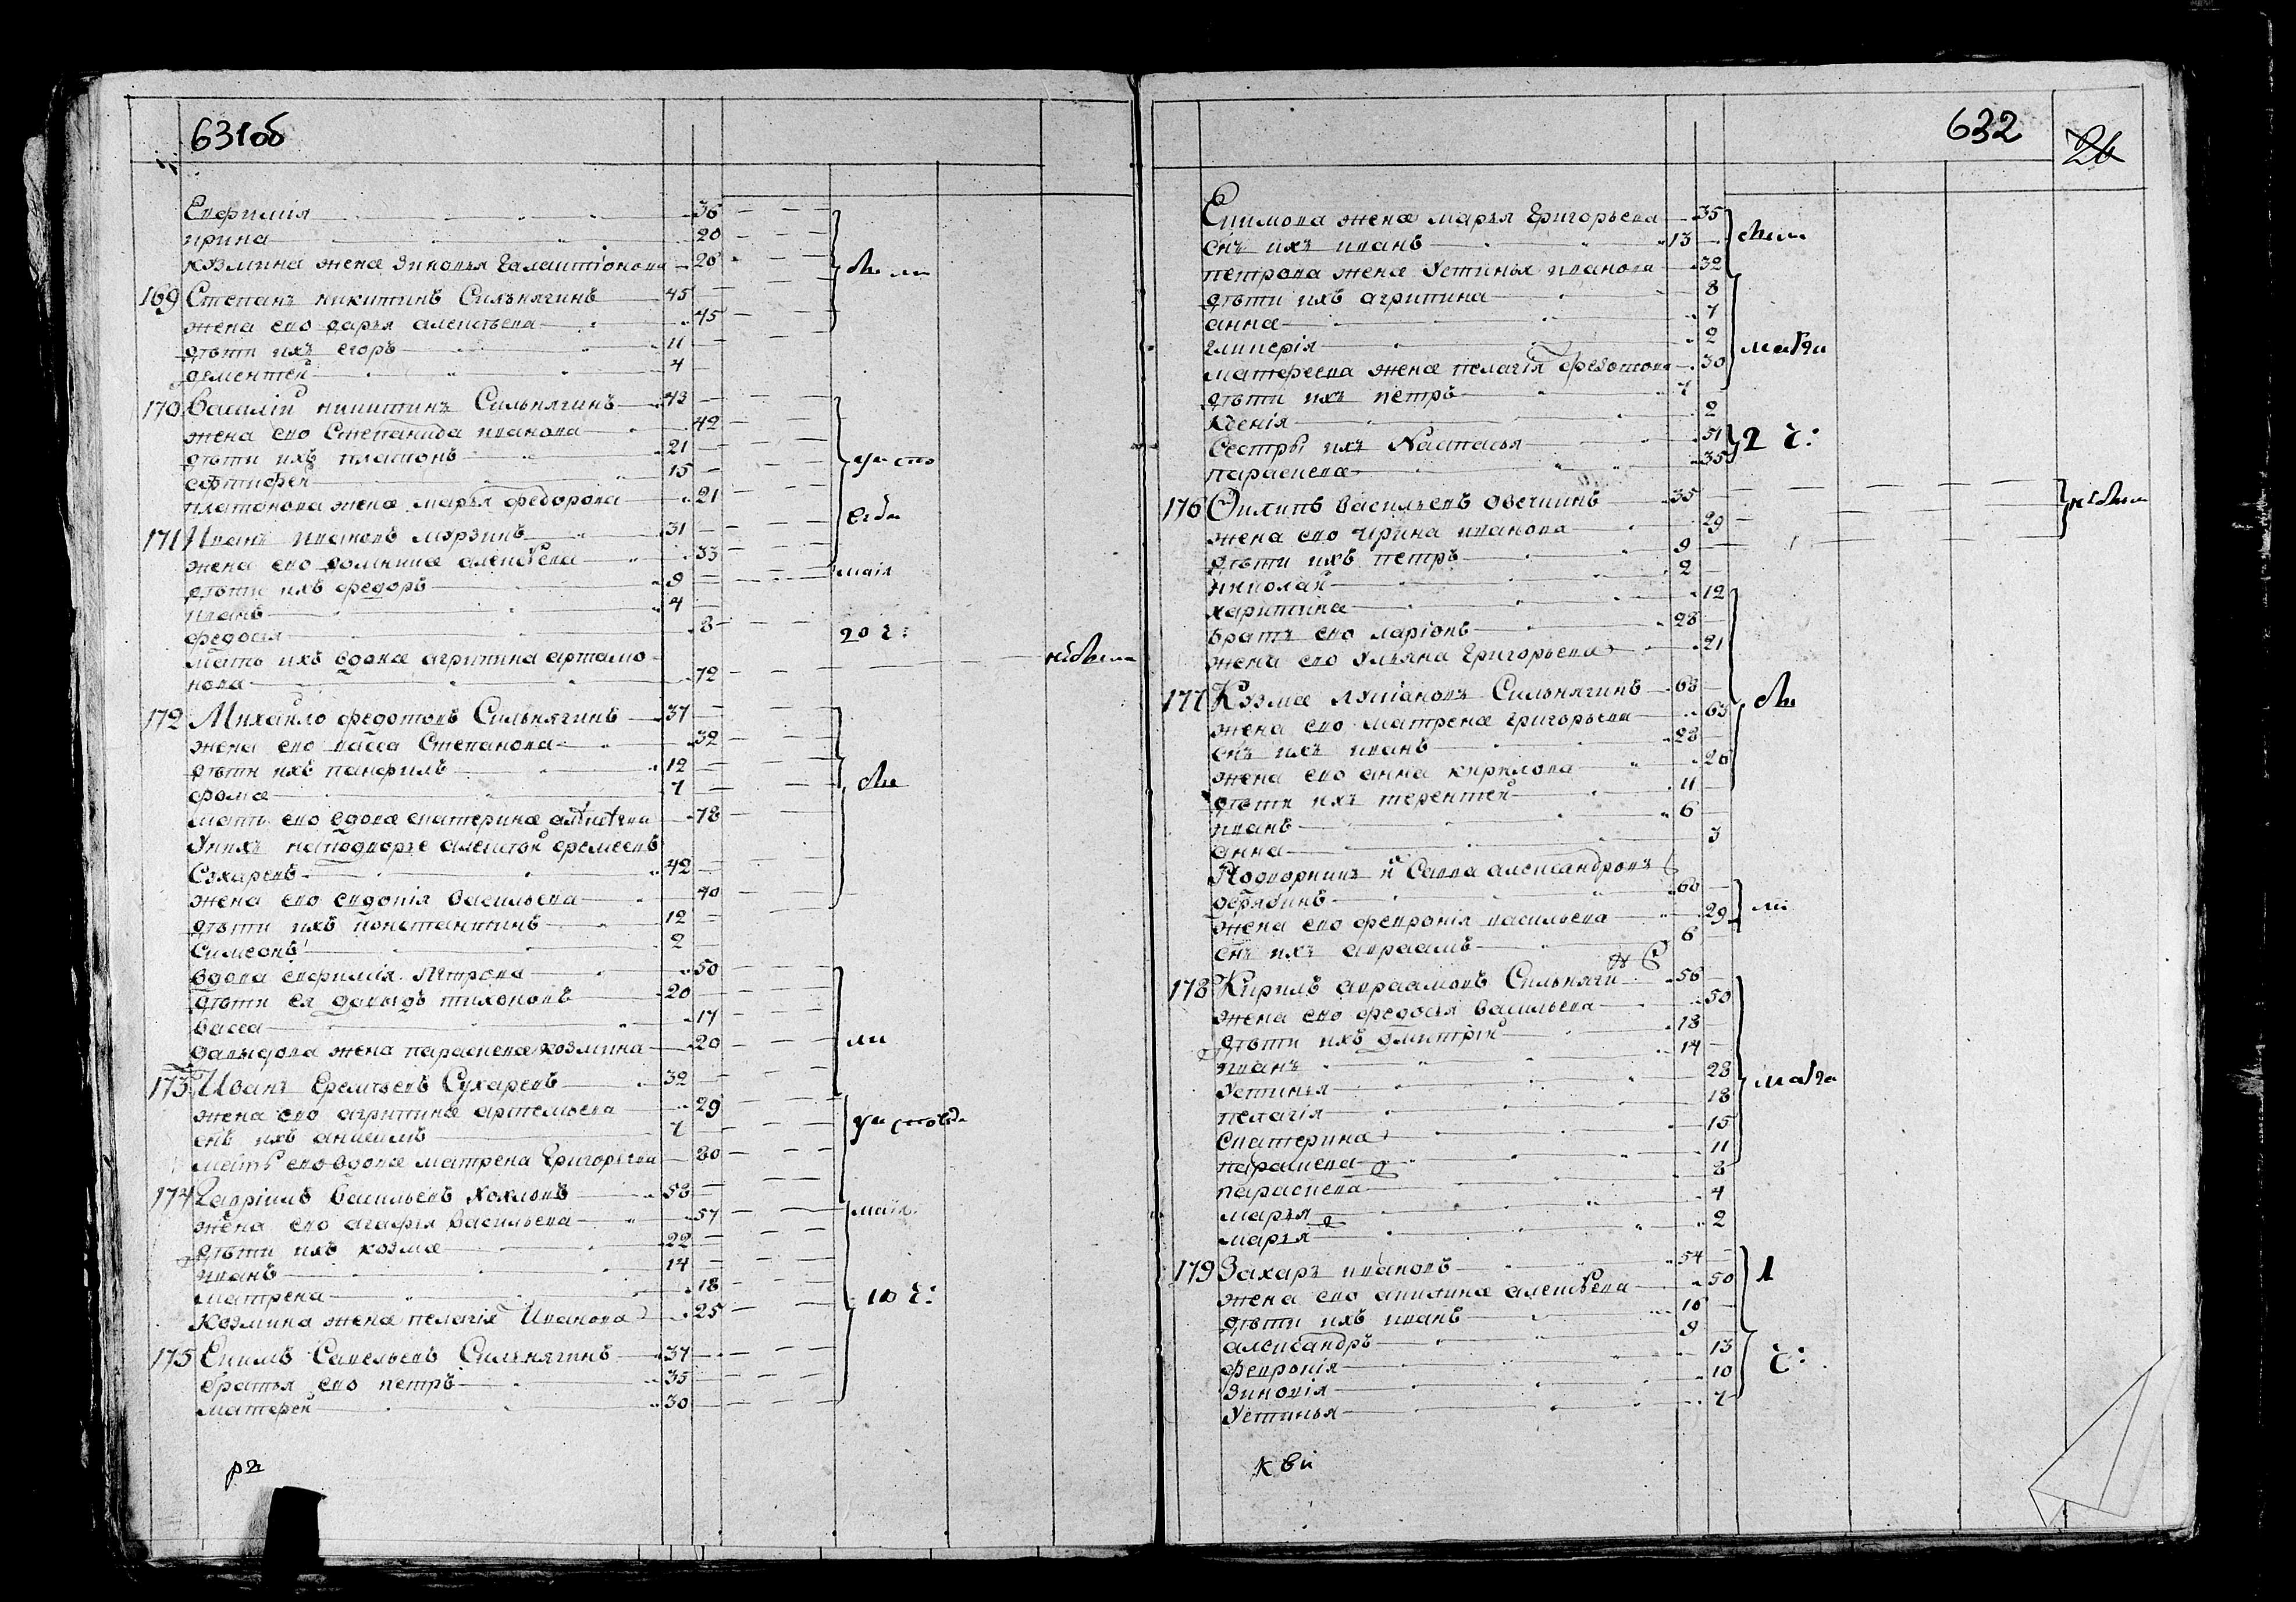 631об
Евфимія 36
ирина 20
козмина жена зиновья Галактіонова 26
169 Степанъ никитинъ Сильнягинъ 45
жена ево дарья алексѣева 45
дѣти ихъ егоръ 11
дементей 4
170 Василій никитинъ Сильнягинъ 43
жена ево Степанида иванова 42
дѣти ихъ платонъ 21
15
платонова жена марья федорова 21
171 Иванъ ивановъ мурзинъ 31
жена ево домникиа алексѣева 33
дѣти ихъ федоръ 9
иванъ 4
федосья 8
мать ихъ вдова агрипина артамо
нова 72
20 г:
небыли
172 Михайло федотовъ Сильнягинъ 37
жена ево васса Степанова 32
дѣти ихъ панфилъ 12
фома 7
мать ево вдова екатерина 78
Унихъ наподворье алексѣй еремеевъ
Сухаревъ 42
жена ево евдокія васильева 40
дѣти ихъ константинъ 12
Симеонъ 2
вдова евфимія Петрова 50
дѣти ея давыдъ тихоновъ 20
васса 17
давыдова жена параскева козмина 20
173 Иванъ Еремѣевъ Сухаревъ 32
жена ево агрипина артемьева 29
снъ ихъ анисимъ 7
мать ево вдова матрена Григорьева 80
174 Гавріилъ васильевъ хохловъ 58
жена ево агафья васильева 57
дѣти ихъ козма 22
иванъ 14
матрена 18
Козмина жена пелагія Иванова 25
10 г:
175 Екимъ Савельевъ Сильнягинъ 37
братья ево петръ 35
матфей 30
632
26
Екимова жена марья Григорьева 35
снъ ихъ иванъ 13
петрова жена Устинья иванова 32
дѣти ихъ агрипина 8
анна 7
гликерія 2
матфеева жена пелагія федотова 30
дѣти ихъ петръ 7
Ксенія 2
Сестры ихъ Настасья 51
параскева 35
2 г:
176 Филипъ васильевъ овечкинъ 35
жена ево ирина иванова 29
дѣти ихъ петръ 9
николай 2
харитина 12
братъ ево ларіонъ 28
жена ево Ульяна Григорьева 21
небыли
177 Козма лукіановъ Сильнягинъ 68
жена ево матрена григорьева 63
снъ ихъ иванъ 28
жена ево анна кирилова 26
дѣти ихъ терентей 11
иванъ 6
анна 3
Подворникъ и Савва александровъ
60
жена ево февронія васильева 29
снъ ихъ авраамъ 6
178 Кирилъ авраамовъ Сильняги 56
жена ево федосья васильева 50
дѣти ихъ дмитрій 18
иванъ 14
Устинья 28
пелагія 18
Екатерина 15
параскева 11
параскева 8
марья 4
марья 2
179 Захаръ ивановъ 54
жена ево акилина алексѣева 50
дѣти ихъ иванъ 16
александръ 9
Февронія 13
Зиновія 10
Устинья 7